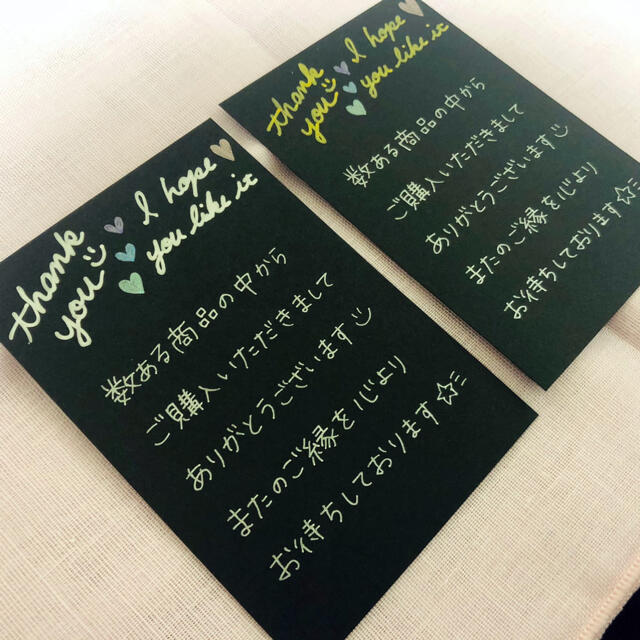 thank you I hope you like it
数ある商品の中から
ご購入いただきまして
ありがとうございますツ
またのご縁を心より
お待ちしております☆ミ
thank you I hope you like it
数ある商品の中から
ご購入いただきまして
ありがとうございますツ
またのご縁を心より
お待ちしております☆ミ